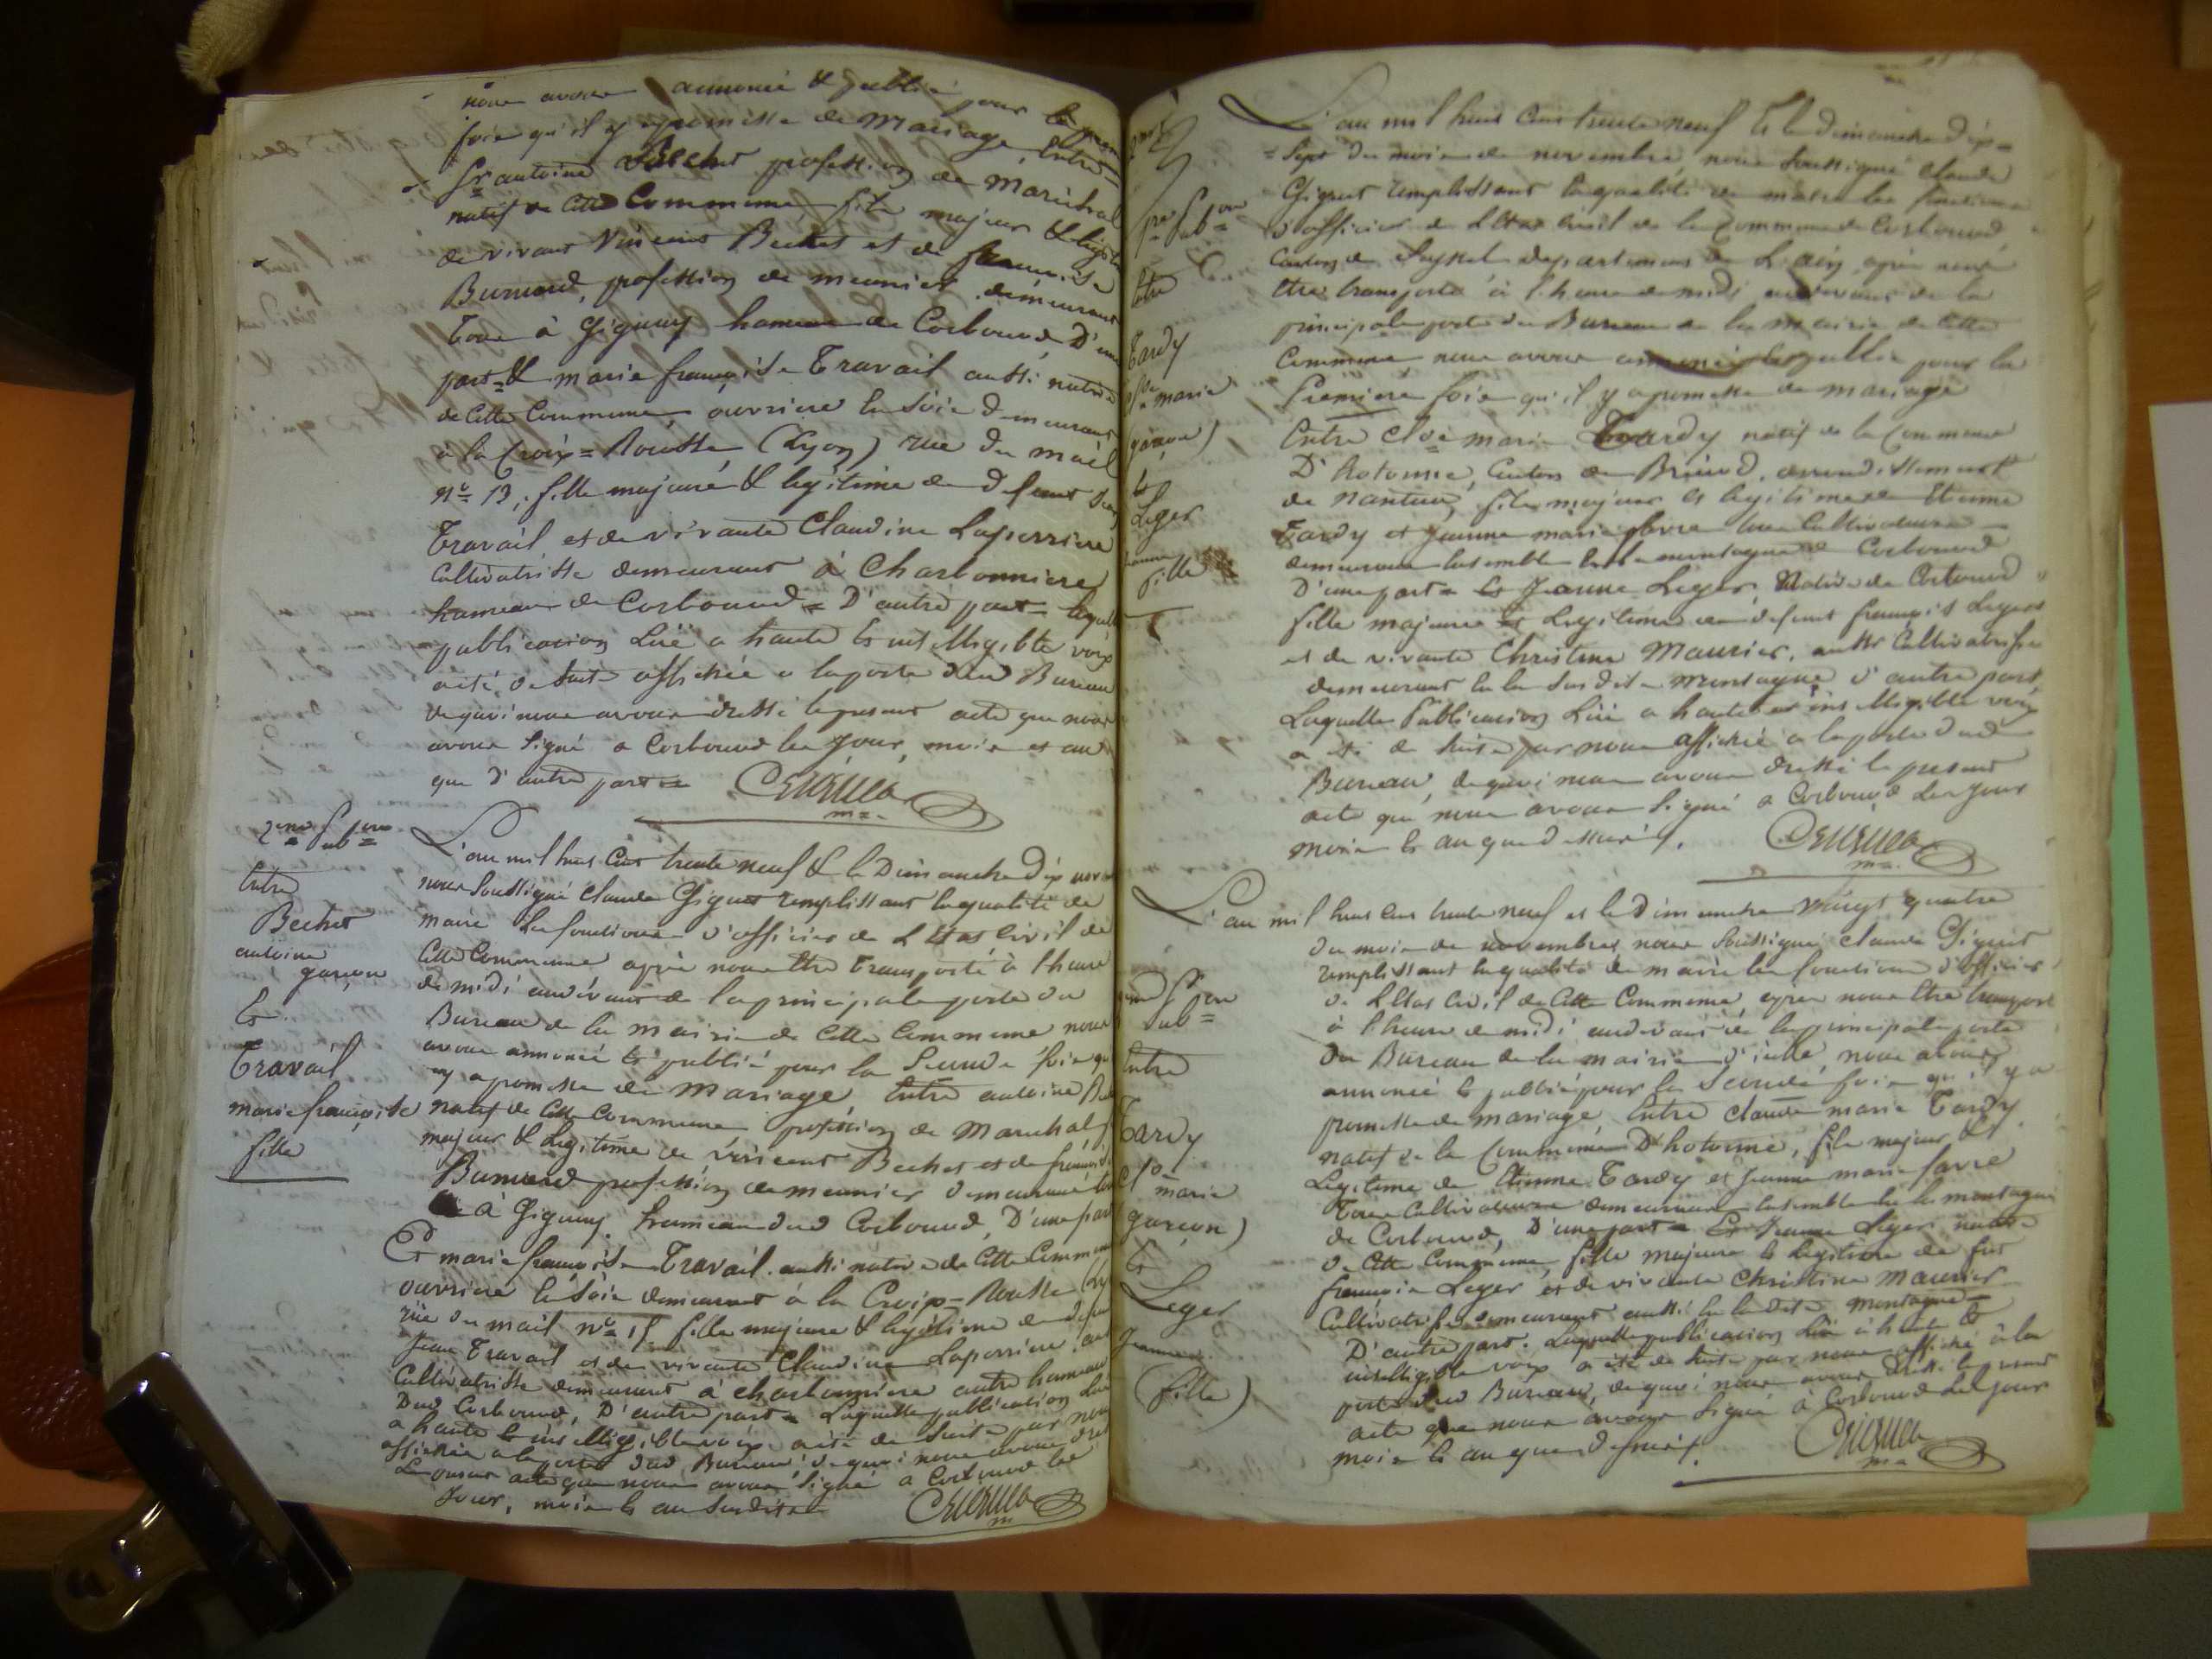 nous avons annoncé & publié pour la
fois qu'il y a promesse de mariage, Entre
Sr antoine Bechet profession de Maréchal
natif de cette Commune, fils majeur & légit
de vivant Vincent Bechet et de francoise
Burnord, profession de meunier demeurant
tous à Gignuy hameau de Corbonod D'une
part = & marie françoise Travail aussi native
de cette Commune, ouvriere En Soie demeurant
a la Croix = Rousse (Lyon) rue du mail
N° 13, fille majeure & legitime de defunt
Travail et de vivante Claudine Laperriere
Cultivatrisse demeurant à Charbonniere
hameau de Corbonod = D'autre part =
publication Lüe a haute Et intelligible voix
a été de suite affichée a la porte dud Bureau
de quoi nous avons dressé le present acte que nous
avons signé a Corbonod les Jour, mois et an
que d'autre part =
m=
2me Pub on
Entre
Bechet
antoine
garçon
Et
Travail
marie françoise
fille
L'an mil huit Cent trente neuf & le Dimanche Dix nov
nous soussigné Claude Giguet remplissant la qualité de
maire Les fonctions d'officier de L'Etat Civil de
cette Commune après nous Etre transporté à l'heure
de midi audevant de la principale porte du
Bureau de la mairie de cette Commune nous
avons annoncé Et publié pour la Seconde fois qu
y a promesse de Mariage Entre antoine
natif de cette Commune profession de Marechal
majeur & Legitime de Vincent Bechet et de
Burnord profession de meunier demeurant
à Gignuy hameau dud Corbonod, D'une part
Et marie françoise Travail aussi native de cette Commune
ouvriere En Soie demeurant à la Croix = Rousse
rüe du mail n° 15 fille majeure & legitime de
Jean Travail et de vivante Claudine Laperriere
Cultivatrisse demeurant à charbonniere autre hameau
Dud Corbonod, D'autre part = Laquelle publication
a haute Et intelligible voix a été de suite par nous
affichée a la porte dud Bureau, de quoi nous avons
Le present acte que nous avons signé a Corbonod les
Jour, mois Et an susdits
m
pre Pub on
Entre
Tardy
marie
(garçon)
Et
Leger
Jeanne
fille
L'an mil huit Cent trente neuf Et le Dimanche dix =
= Sept du mois de novembre, nous soussigné Claude
Giguet remplissant la qualité de maire les fonctions
d'officier de L'Etat Civil de la Commune de Corbonod,
Canton de Seyssel departement de L'ain, après nous
Etre transporté à l'heure de midi audevant de la
principale porte du Bureau de la mairie de cette
Commune nous avons annoncé Et publié pour la
Premiere fois qu'il y a promesse de mariage
Entre Cl de marie Tardy natif de la Commune
D'hotonne, Canton de Brénod, arrondissement
de Nantua, fils majeur Et legitime de Etienne
Tardy et Jeanne marie favre tous Cultivateurs
demeurant Ensemble En la montagne de Corbonod
D'une part = Et Jeanne Leger, Native de Corbonod
fille majeure Et Legitime de defunt françois Leger
et de vivante Christine Maurier, aussi Cultivatrisse
demeurant En la susdite Montagne d'autre part,
Laquelle Publication Lüe a haute et intelligible voix
a été de suite par nous affichée a la porte dud
Bureau, de quoi nous avons dressé le present
acte que nous avons signé a Corbonod Les Jour
mois Et an que dessus.
m=.
Pub on
Entre
Tardy
Cl de
marie
(garçon)
Et
Leger
Jeanne
(fille)
L'an mil huit Cent trente neuf et le Dimanche Vingt quatre
du mois de novembre, nous soussigné Claude Giguet
remplissant la qualité de maire les fonctions d'officier
de L'Etat Civil de cette Commune, après nous Etre transporté
à l'heure de midi audevant de la principale porte
du Bureau de la mairie d'icelle, nous avons
annoncé Et publié pour la Seconde fois qu'il y a
promesse de mariage Entre Claude marie Tardy
natif de la Commune D'hotonne, fils majeur &
Legitime de Etienne Tardy et Jeanne marie favre
Tous Cultivateurs demeurant Ensemble En la montagne
de Corbonod, D'une part = Et Jeanne Leger native
de cette Commune, fille majeure Et Legitime de feu
françois Leger et de vivante Christine Maurier
Cultivatrisse demeurant aussi En la dite Montagne =
D'autre part. Laquelle publication Lüe à haute &
intelligible voix a été de suite par nous affiché à la
porte dud Bureau, de quoi nous avons dressé le present
acte que nous avons signé à Corbonod Les Jour
mois Et an que dessus.
m=